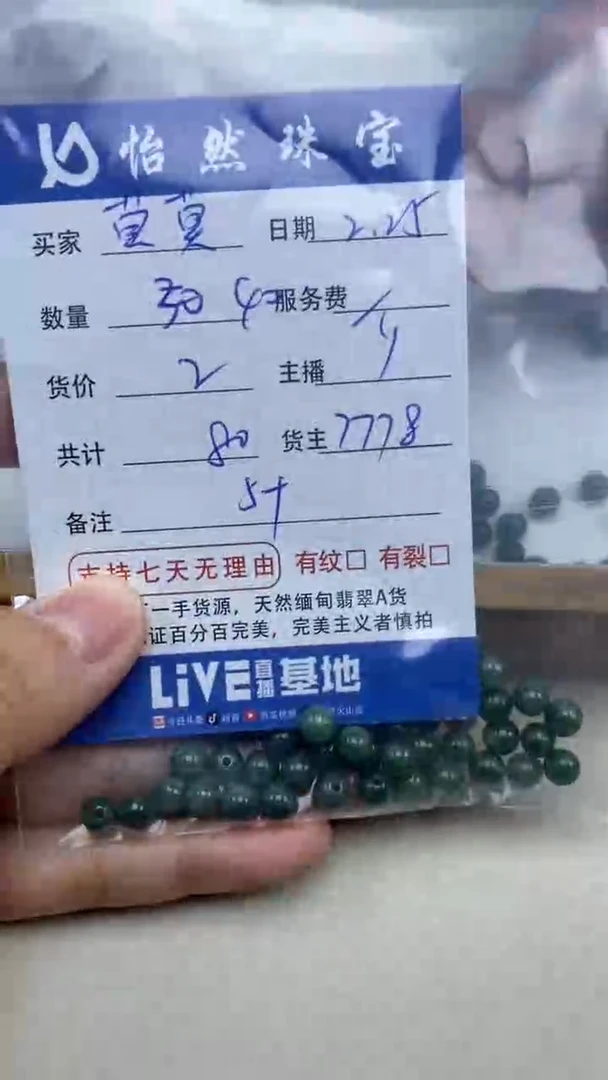 怡然珠宝
买家 日期 2.25
数量 服务费
货价 2 主播 y
共计 80 货主 7778
备注 5十
支持七天无理由 有纹□ 有裂□
一手货源，天然缅甸翡翠A货
证百分百完美，完美主义者慎拍
LiVE直播基地
今日头条